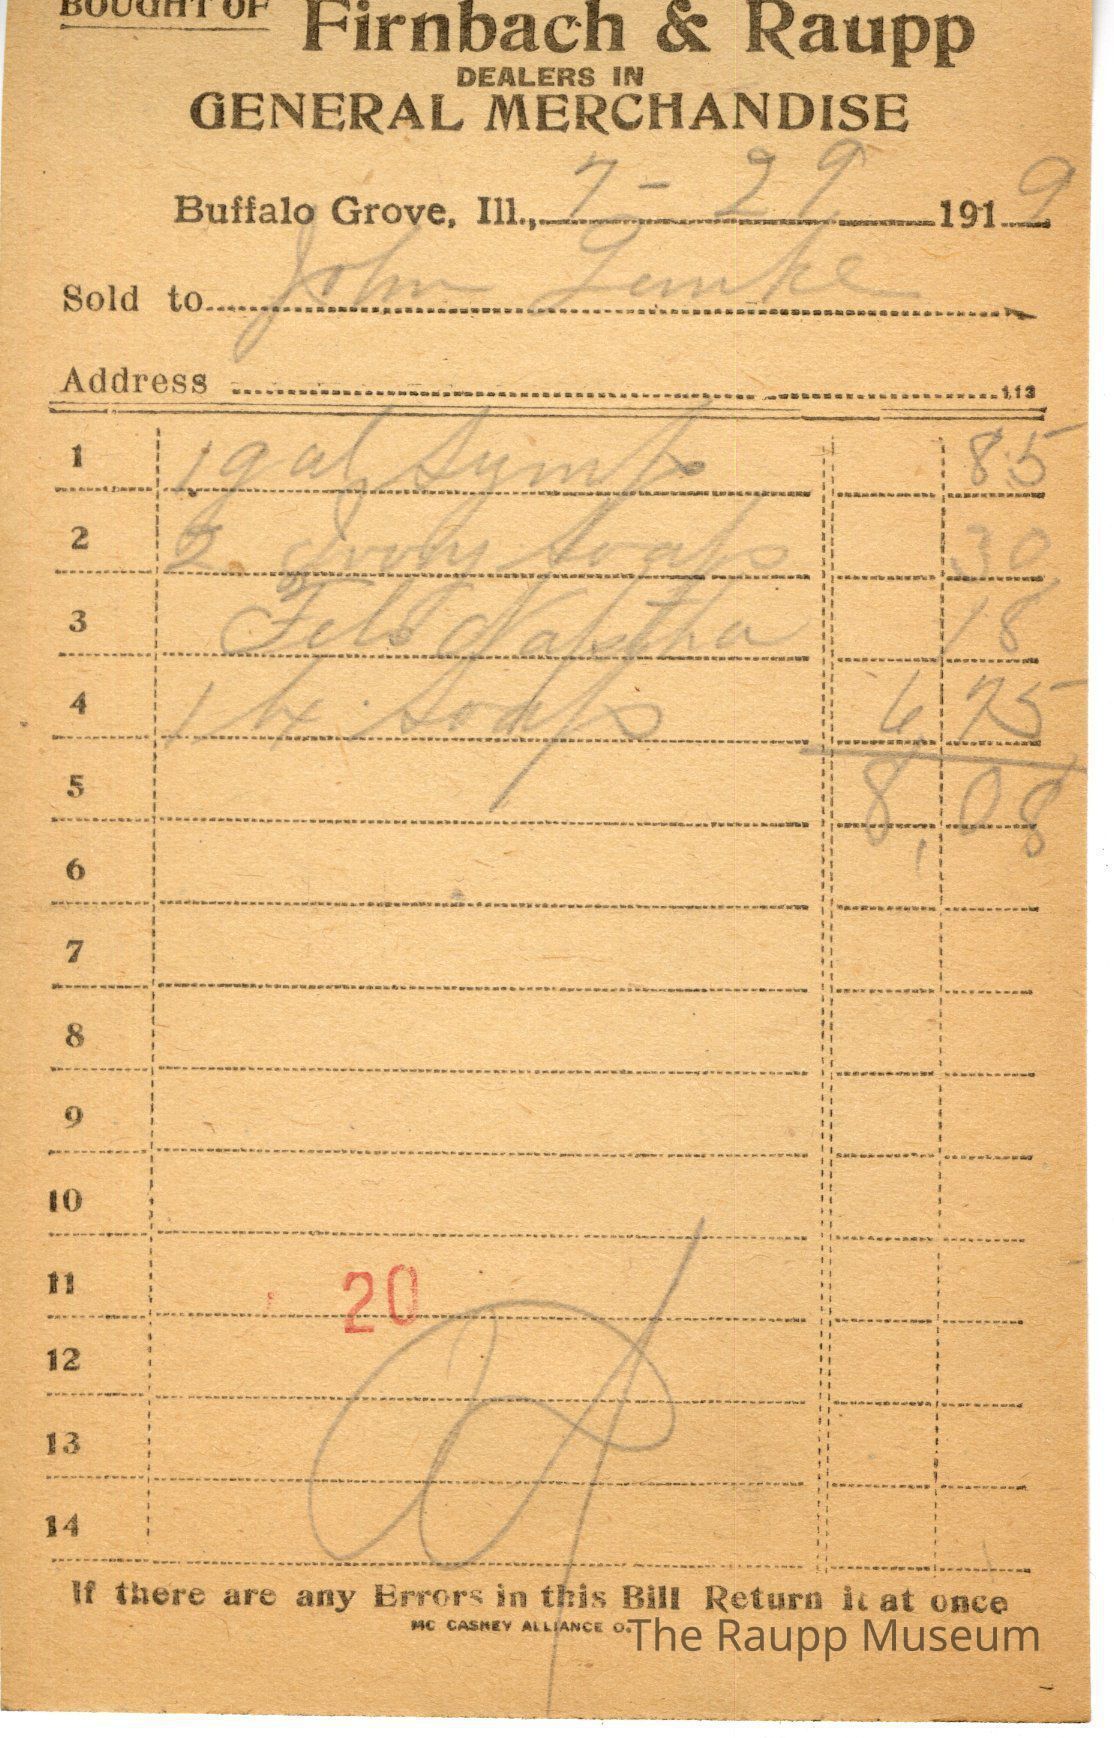 BOUGHT OF Firnbach & Raupp
DEALERS IN
GENERAL MERCHANDISE
Buffalo Grove, Ill., 7-29 1919
Sold to John Lemke
Address
113
1 1 gal Syrup 85
2 2 Ivory Soaps 30
3 3 Fels Naptha 18
4 1 bx. Soaps 6.75
5 8,08
6
7
8
9
10
11 20
12
13
14
If there are any Errors in this Bill Return it at once
MC CASKEY ALLIANCE O.
The Raupp Museum